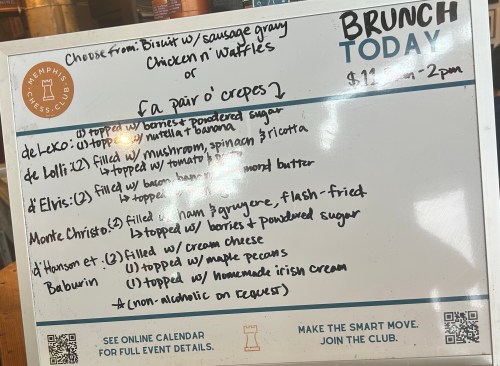 MEMPHIS CHESS CLUB
BRUNCH
TODAY
$11 - 2pm
Choose from: Biscuit w/ sausage gravy
Chicken n' Waffles
or
a pair o' crepes
de Lexo: (1) topped w/ berries + powdered sugar
(1) topped w/ nutella + banana
de Lolli: (2) filled w/ mushroom, spinach & ricotta
topped w/ tomato &
d'Elvis: (2) filled w/ bacon, butter
topped
Monte Christo: (2) filled ham & gruyere, flash-fried
topped w/ berries + powdered sugar
d'Hanson et Baburin: (2) filled w/ cream cheese
(1) topped w/ maple pecans
(1) topped w/ homemade irish cream
(non-alcoholic on request)
SEE ONLINE CALENDAR
FOR FULL EVENT DETAILS.
MAKE THE SMART MOVE.
JOIN THE CLUB.